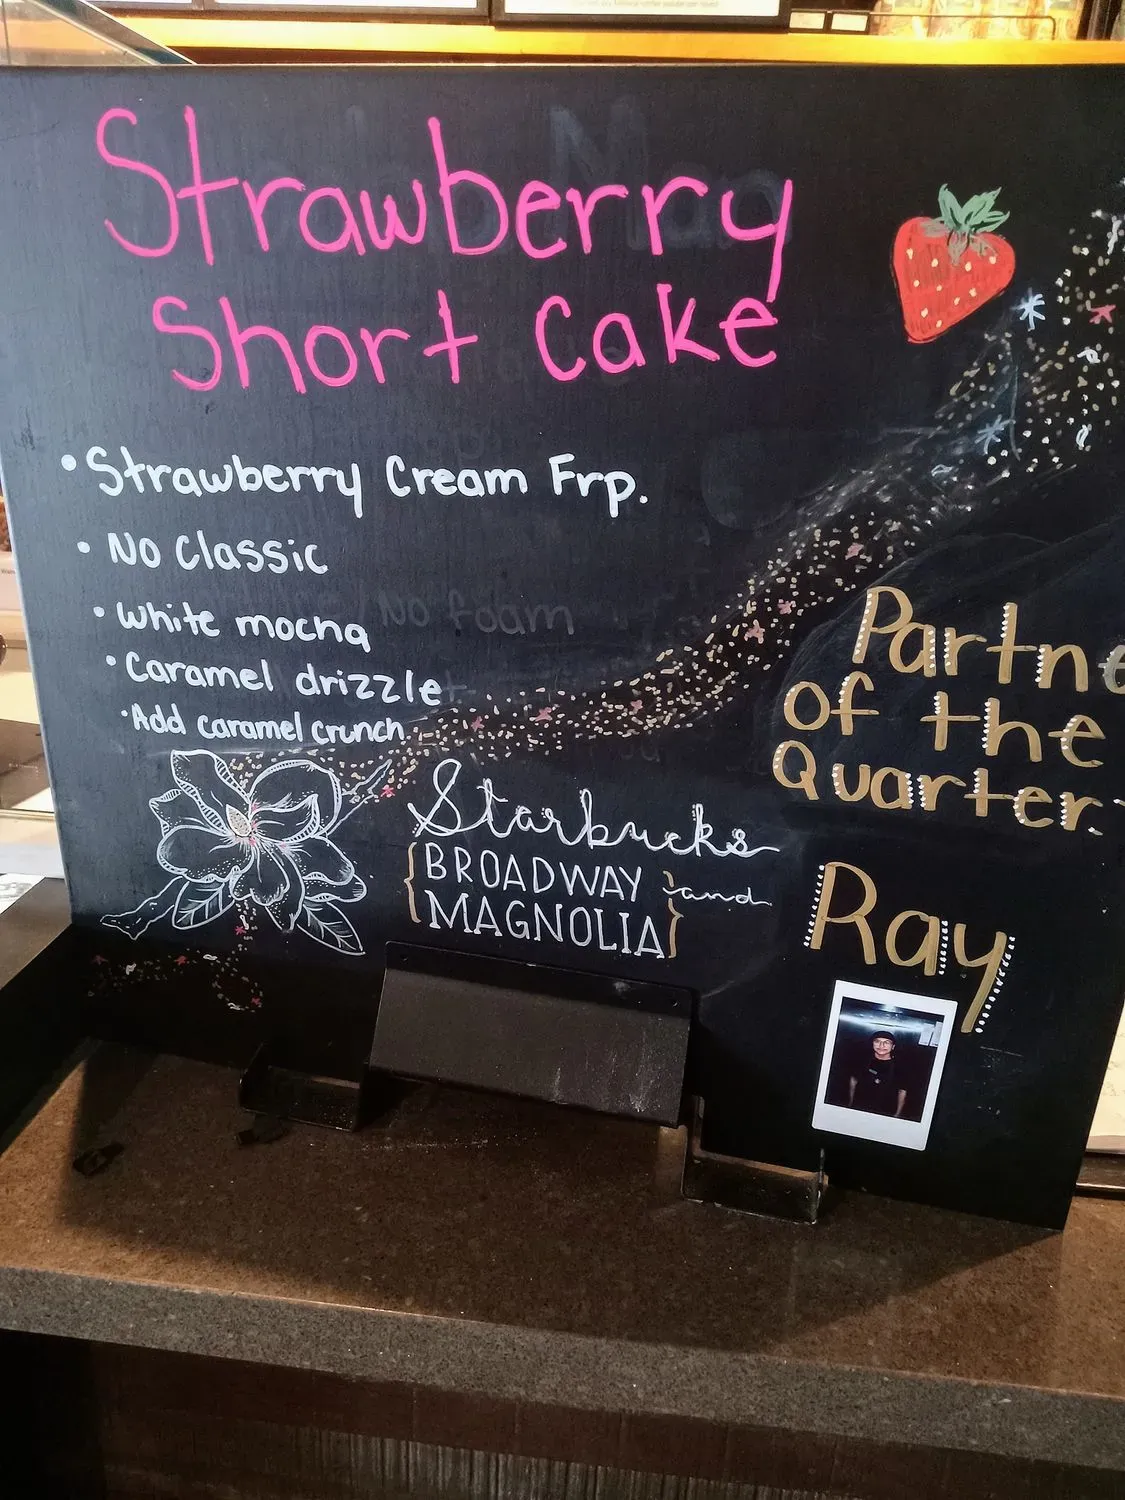 Strawberry
Short Cake
• Strawberry Cream Frp.
• No Classic
• White mocha
No foam
• Caramel drizzle
• Add caramel crunch
Starbucks
{BROADWAY and
MAGNOLIA}
Partne
of the
Quarter
Ray